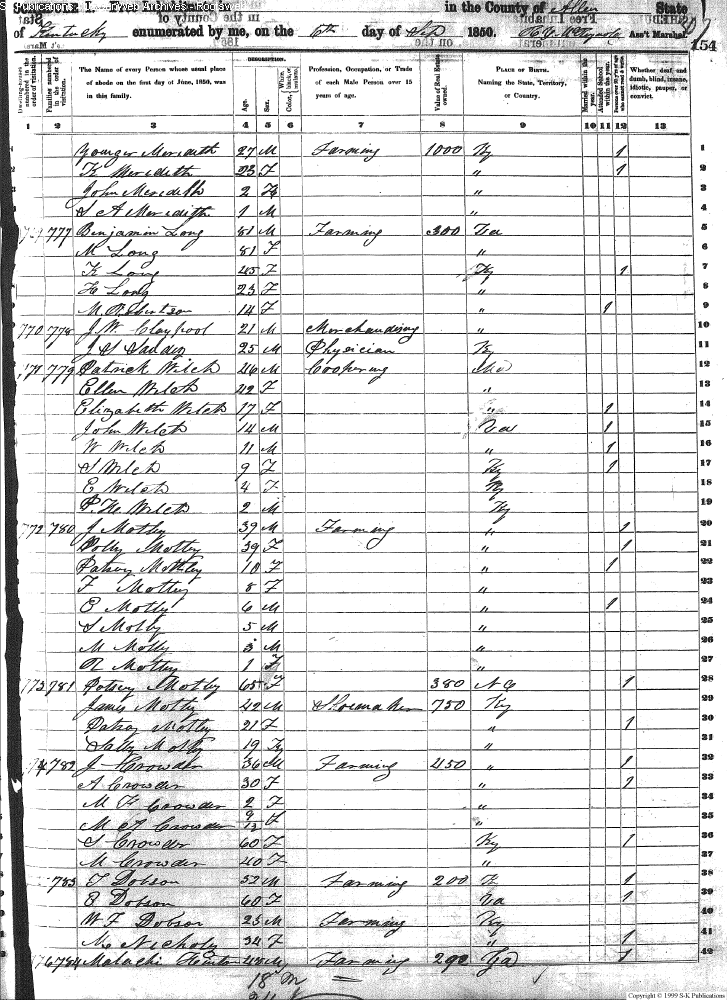 in the County of Allen State
of Kentucky enumerated by me, on the 6th day of Sep 1850. Ass't Marshal.
154
DESCRIPTION.
Dwelling-houses numbered in the order of visitation.
Families numbered in the order of visitation.
The Name of every Person whose usual place of abode on the first day of June, 1850, was in this family.
Age.
Sex.
Color,
Profession, Occupation, or Trade of each Male Person over 15 years of age.
Value of Real Estate owned.
PLACE OF BIRTH. Naming the State, Territory, or Country.
Married within the year.
Attended School within the year.
Whether deaf and dumb, blind, insane, idiotic, pauper, or convict.
1 2 3 4 5 6 7 8 9 10 11 12 13
1 Younger Meredith 27 M Farming 1000 Ky 1 1
K Meredith 23 F " 1 2
John Meredith 2 " 3
S A Meredith 1 M " 4
777 Benjamin Long 81 M Farming 300 Va 5
M Long 81 F " 6
K Long 45 F Ky 1 7
H Long 23 F " 8
M Robertson 14 F " 1 9
770 778 J. W. Claypool 21 M Merchandising " 10
J S 25 M Physician Ky 11
771 779 Patrick Welch 46 M Coopering 12
Ellen Welch 42 F " 13
Elizabeth Welch 17 F " 1 14
John Welch 14 M Va 1 15
W Welch 11 M " 1 16
S Welch 9 F Ky 1 17
E Welch 4 F Ky 18
P. H. Welch 2 M Ky 19
772 780 J Motley 39 M Farming " 1 20
Polly Motley 39 F " 1 21
Patsey Motley 10 F " 1 22
F Motley 8 F " 23
E Motly 6 M " 1 24
S Motly 5 M " 25
M Motly 3 M " 26
Motley 1 F " 27
773 781 Motley 65 F 380 N C 1 28
James Motley 42 M Shoemaker 750 Ky 29
Patsey Motley 21 F " 1 30
Sally Motly 19 " 31
774 782 J Crowder 36 M Farming 450 " 1 32
A Crowder 30 F " 1 33
M F Crowder 2 F " 34
M A Crowder 9/12 F " 35
S Crowder 60 F Ky 1 36
M Crowder 40 F " 37
783 T Dobson 52 M Farming 200 K 1 38
E Dobson 60 F Va 1 39
W F Dobson 23 M Farming Ky 40
Nichols 34 F " 1 41
776 784 Malachi 48 M Farming 292 1 42
18 M
Copyright © 1999 S-K Publications